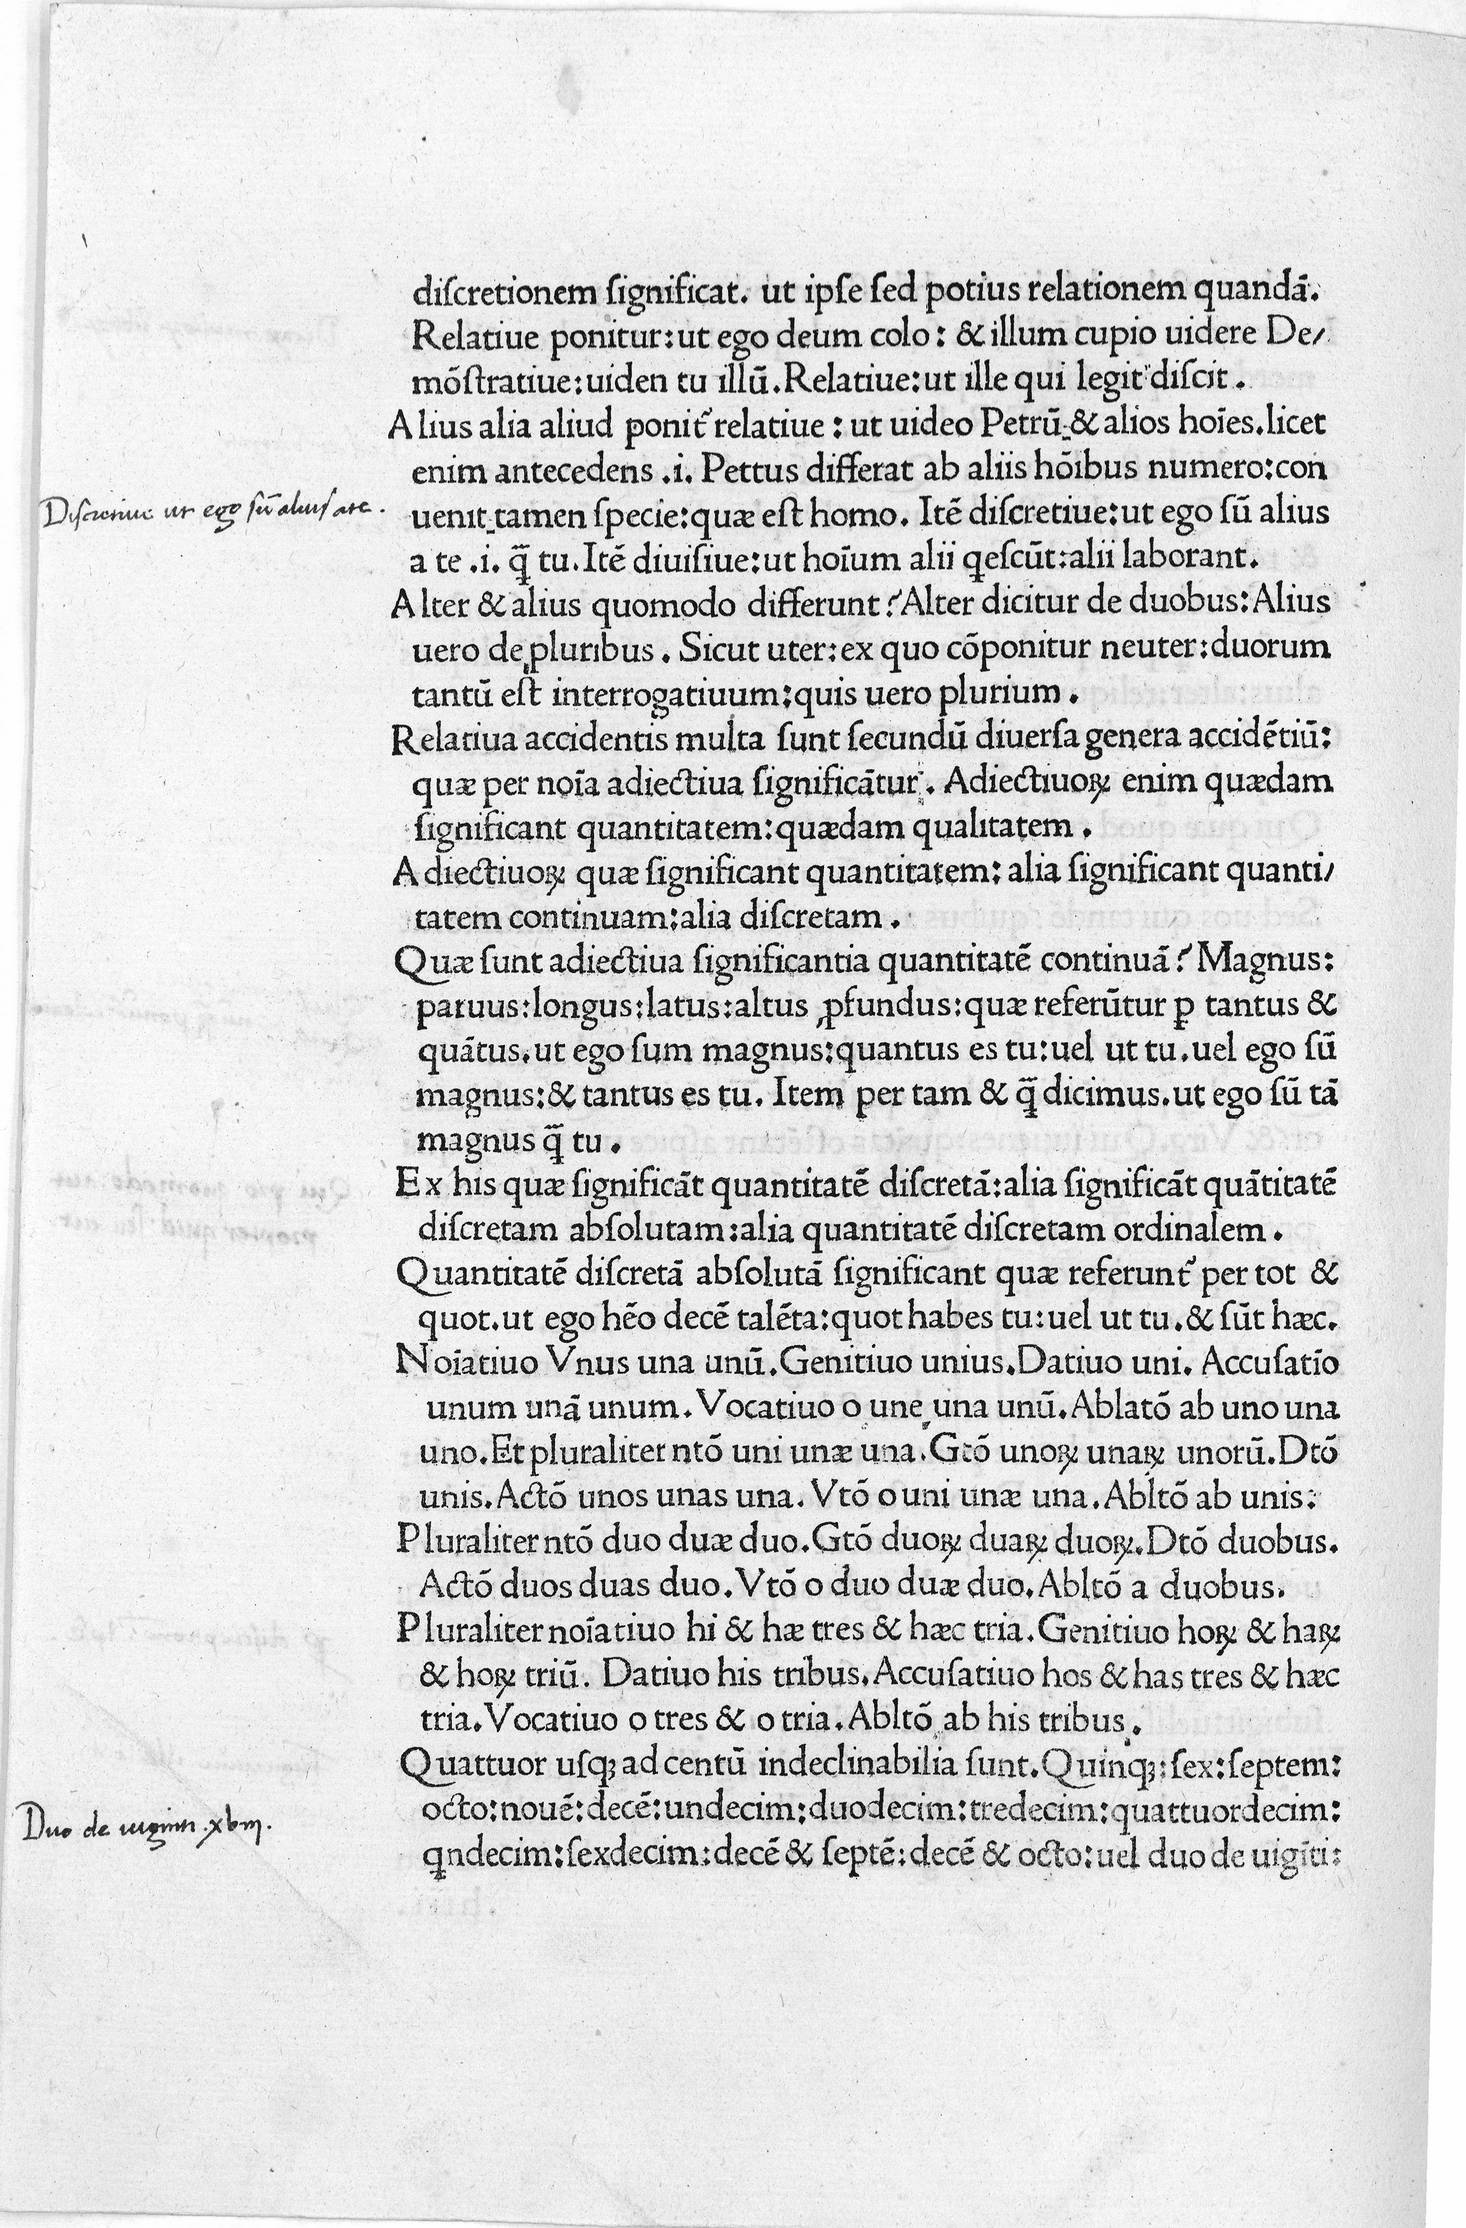 discretionem significat. ut ipse sed potius relationem quandã.
Relatiue ponitur: ut ego deum colo: & illum cupio uidere De/
mõstratiue: uiden tu illũ. Relatiue: ut ille qui legit discit.
Alius alia aliud ponit᷑ relatiue: ut uideo Petrũ & alios hoĩes. licet
enim antecedens .i. Pettus differat ab aliis hõibus numero: con
Discretiue ut ego sũ alius a te.
uenit tamen specie: quæ est homo. Itẽ discretiue: ut ego sũ alius
a te .i. q̃ tu. Itẽ diuisiue: ut hoĩum alii qescũt: alii laborant.
Alter & alius quomodo differunt? Alter dicitur de duobus: Alius
uero de pluribus. Sicut uter: ex quo cõponitur neuter: duorum
tantũ est interrogatiuum: quis uero plurium.
Relatiua accidentis multa sunt secundũ diuersa genera accidẽtiũ:
quæ per noĩa adiectiua significãtur. Adiectiuoꝝ enim quædam
significant quantitatem: quædam qualitatem.
Adiectiuoꝝ quæ significant quantitatem: alia significant quanti/
tatem continuam: alia discretam.
Quæ sunt adiectiua significantia quantitatẽ continuã? Magnus:
paruus: longus: latus: altus ꝓfundus: quæ referũtur ꝑ tantus &
quãtus. ut ego sum magnus: quantus es tu: uel ut tu. uel ego sũ
magnus: & tantus es tu. Item per tam & q̃ dicimus. ut ego sũ tã
magnus q̃ tu.
Ex his quæ significãt quantitatẽ discretã: alia significãt quãtitatẽ
discretam absolutam: alia quantitatẽ discretam ordinalem.
Quantitatẽ discretã absolutã significant quæ referunt᷑ per tot &
quot. ut ego hẽo decẽ talẽta: quot habes tu: uel ut tu. & sũt hæc.
Noĩatiuo Vnus una unũ. Genitiuo unius. Datiuo uni. Accusatĩo
unum unã unum. Vocatiuo o une una unũ. Ablatõ ab uno una
uno. Et pluraliter ntõ uni unæ una. Gtõ unoꝝ unaꝝ unorũ. Dtõ
unis. Actõ unos unas una. Vtõ o uni unæ una. Abltõ ab unis:
Pluraliter ntõ duo duæ duo. Gtõ duoꝝ duaꝝ duoꝝ. Dtõ duobus.
Actõ duos duas duo. Vtõ o duo duæ duo. Abltõ a duobus.
Pluraliter noĩatiuo hi & hæ tres & hæc tria. Genitiuo hoꝝ & haꝝ
& hoꝝ triũ. Datiuo his tribus. Accusatiuo hos & has tres & hæc
tria. Vocatiuo o tres & o tria. Abltõ ab his tribus.
Quattuor usqꝫ ad centũ indeclinabilia sunt. Quinqꝫ: sex: septem:
Duo de uiginti .xbiij.
octo: nouẽ: decẽ: undecim: duodecim: tredecim: quattuordecim:
qndecim: sexdecim: decẽ & septẽ: decẽ & octo: uel duo de uigĩti: